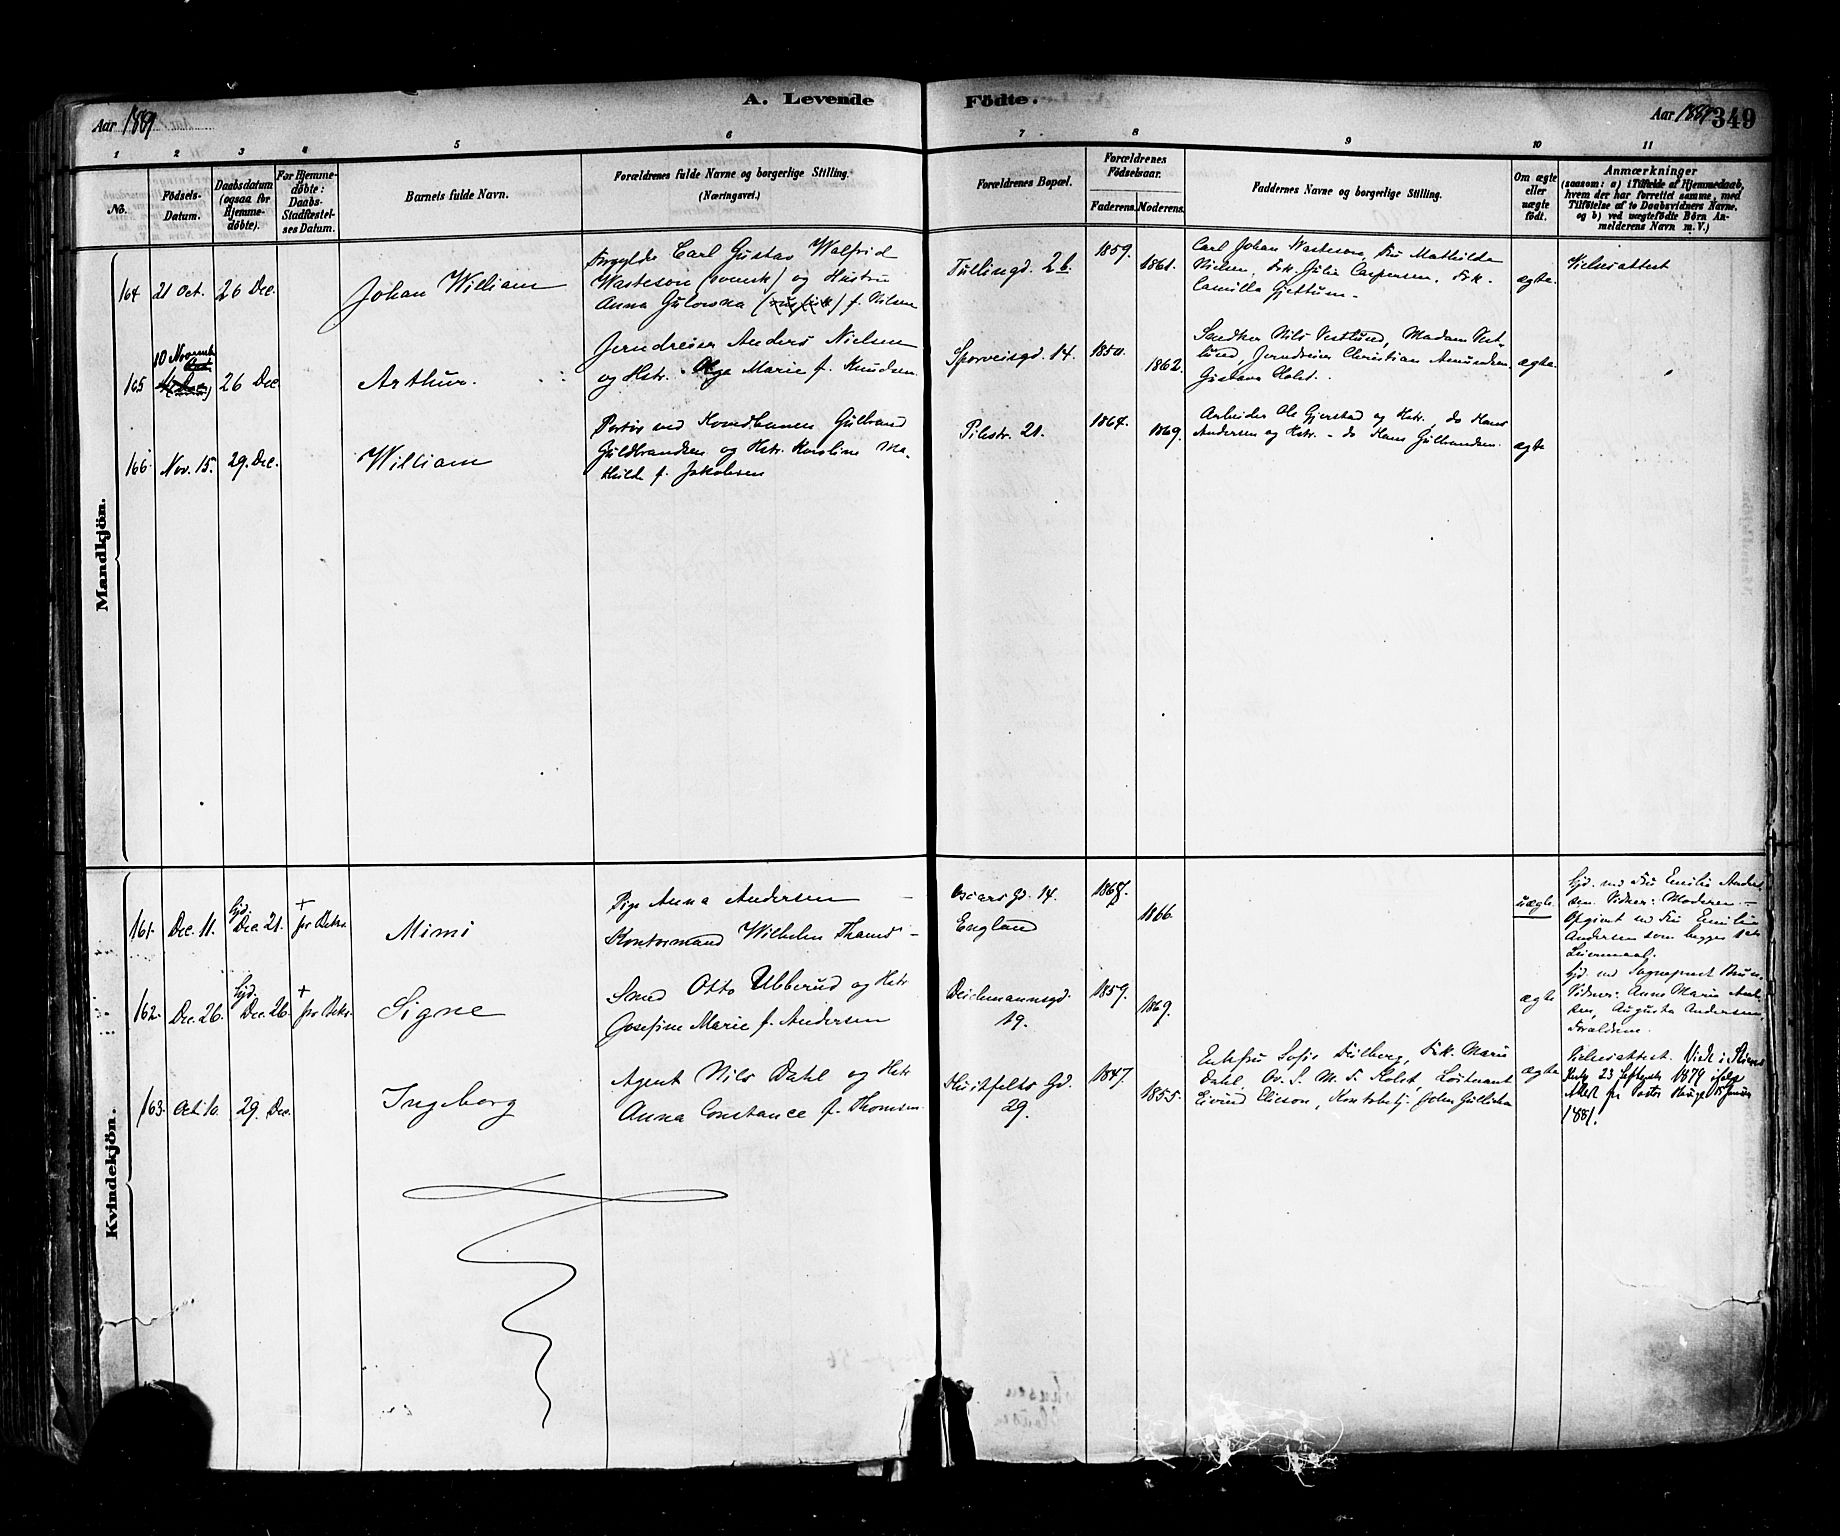 A. Levende Födte.
Aar 1889
Aar 1889
349
1 2 3 4 5 6 7 8 9 10 11
No.
Födsels-Datum.
Daabsdatum (ogsaa for Hjemme-døbte).
For Hjemme-døbte: Daabs-Stadfæstel-ses Datum.
Barnets fulde Navn.
Forældrenes fulde Navne og borgerlige Stilling.
(Næringsvei.)
Forældrenes Bopæl.
Forældrenes Fødselsaar.
Faderens. Moderens.
Faddernes Navne og borgerlige Stilling.
Om ægte eller uægte födt.
Anmærkninger
(saasom: a) i Tilfælde af Hjemmedaab,
hvem der har forrettet samme, med
Tilföielse af to Daabsvidners Navne,
og b) ved uægtefödte Börn An-
melderens Navn m. V.)
Mandkjön.
164 21 Oct. 26 Dec. Johan William
Forgylder Carl Gustav Walfrid
Wasteson (svensk) og Hustru
Anna Gulovna f. Nilsen
Tullingd. 2b. 1859. 1861.
Carl Johan Wasteson, Fru Mathilda
Nielsen, Frk. Julie Caspersen, Frk.
Camilla Gjettum.
ægte. Vielsesattest
165 10 Novemb 26 Dec Arthur.
Jerndreier Anders Nielsen
og Hstr. Marie f. Knudsen
Sporveisgd. 14. 1850. 1862.
Snedker Nils Vestlund, Madam Vest-
lund, Jerndreier Christian Amundsen
Gustava Holst.
ægte.
166 Nov. 15. 29. Dec. William
Portør ved Hovedbanen Gulbrand
Guldbrandsen og Hstr. Karoline Ma-
thilde f. Jakobsen
Pilestr. 21. 1864. 1869.
Arbeider Ole Gjerstad og Hstr., do Hans
Andersen og Hstr. - do Hans Gulbrandsen
ægte
Kvindekjön.
161. Dec. 11. Hjd. Dec. 21. + før Bekr. Mimi
Pige Anna Andersen
Kontormand Wilhelm Thams
Oscarsgd. 14.
England
1868. 1866.
uægte
Hjd. ved Fru Emilie Ander-
sen. Vidner: Moderen. -
Opgivet ved Fru Emilie
Andersen som begges 1ste
Leiermaal.
162. Dec. 26. Hjd. Dec. 26. + før Bekr. Signe
Smed Otto Ubberud og Hstr
Josefine Marie f. Andersen
Deichmannsgd.
19.
1859. 1869.
ægte
Hjd. ved Sogneprest Bruun
Vidner: Anne Marie
Augusta Andersen,
Forældrene.
163. Oct. 10. 29. Dec. Ingeborg
Agent Nils Dahl og Hstr
Anna Constance f. Thomsen
Huitfelts Gd.
29.
1847. 1855.
Enkefru Sofie Frk. Marie
Dahl, Ov. S. M. F. Holst, Løitnant
Eivind Elieson, John
ægte
Vielsesattest. Viede i
23 Septemb. 1879 ifølge
Attest fra Pastor Hauge 15 Januar
1881.